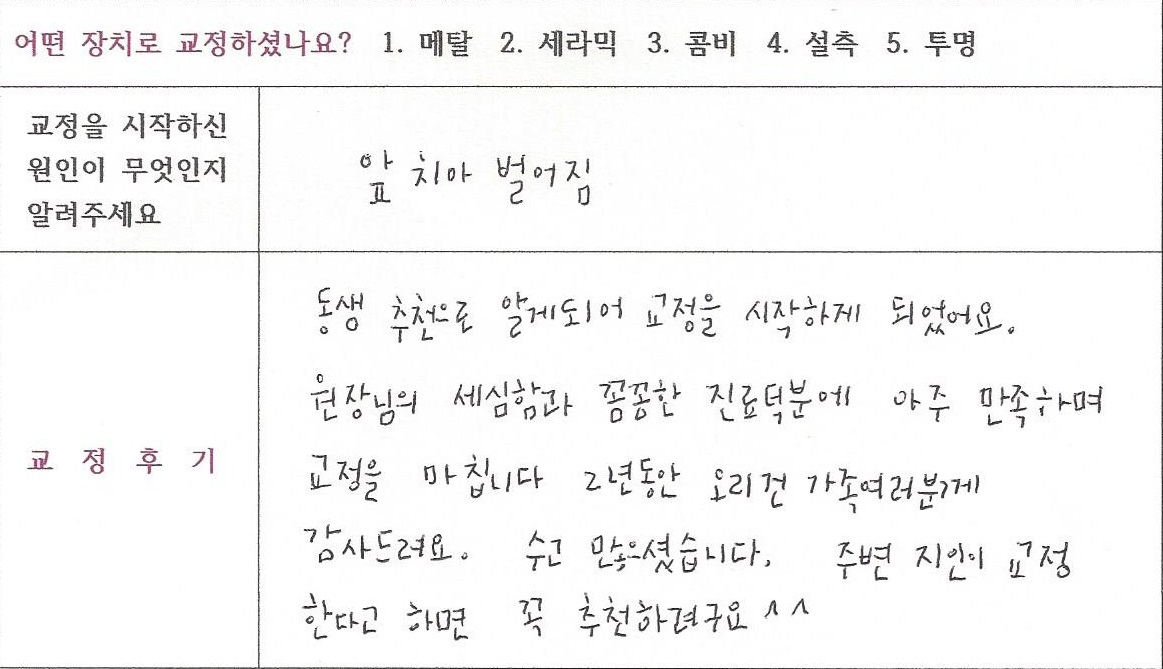 어떤 장치로 교정하셨나요? 1. 메탈 2. 세라믹 3. 콤비 4. 설측 5. 투명
교정을 시작하신
원인이 무엇인지
알려주세요
앞 치아 벌어짐
교 정 후 기
동생 추천으로 알게되어 교정을 시작하게 되었어요.
원장님의 세심함과 꼼꼼한 진료덕분에 아주 만족하며
교정을 마칩니다 2년동안 오리건 가족여러분께
감사드려요. 수고 많으셨습니다. 주변 지인이 교정
한다고 하면 꼭 추천하려구요 ^^